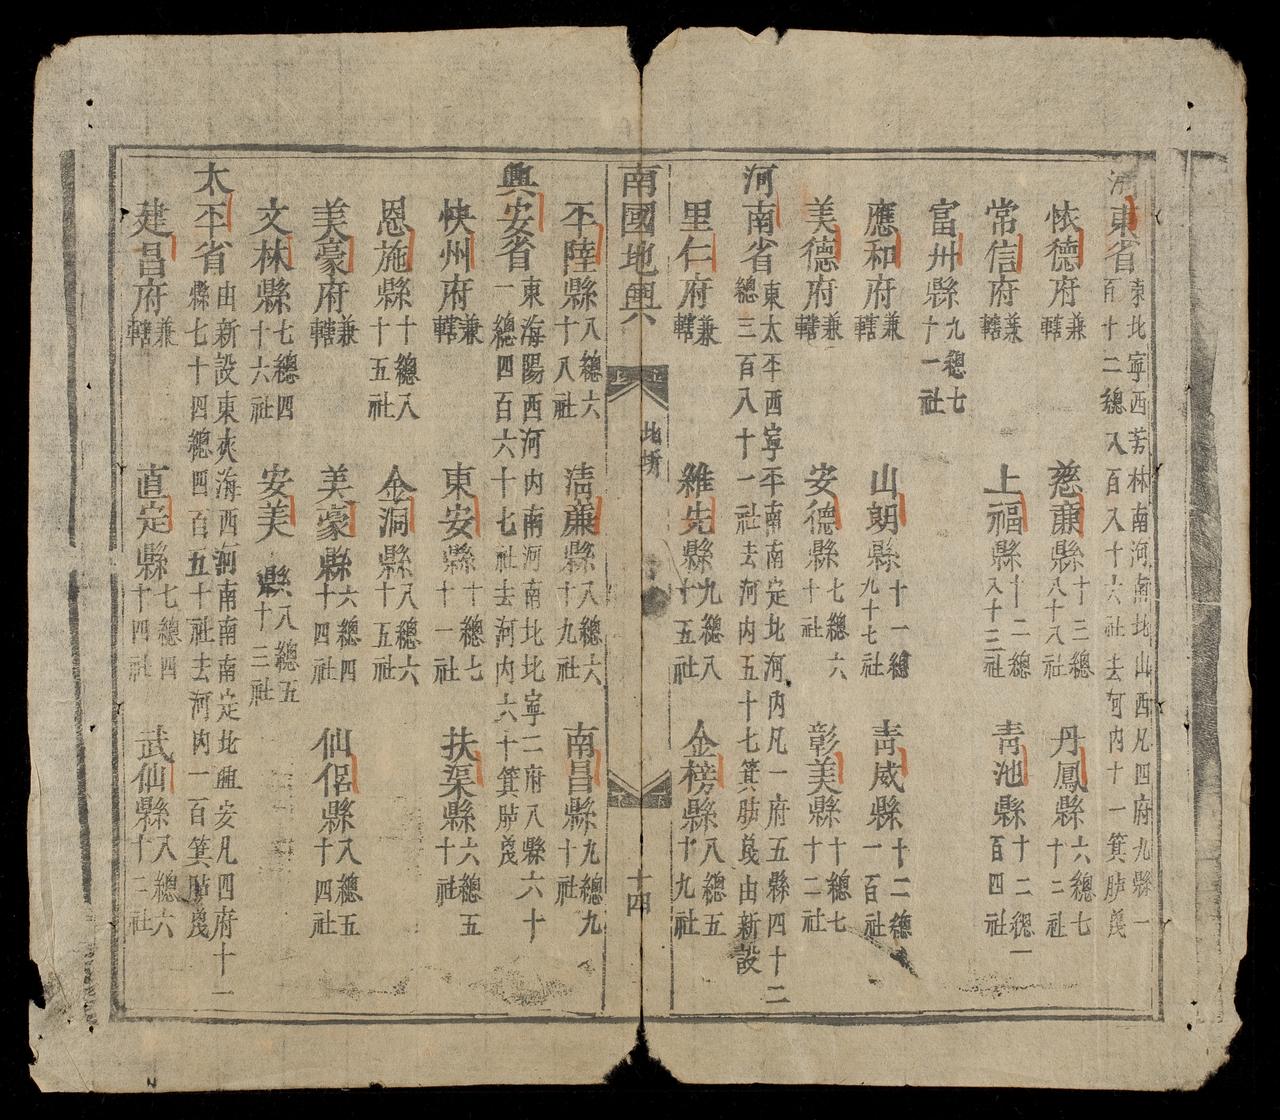 河東省東北寧西芳林南河南北山西凡四府九縣一
百十二總八百八十六社去河内十一箕胪㦖
怢德府兼轄 慈廉縣十三總八十八社 丹鳳縣六總七十二社
常信府兼轄 上福縣十二總八十三社 青池縣十二總一百四社
富州縣九總七十一社
應和府兼轄 山朗縣十一總九十七社 青威縣十二總一百社
美德府兼轄 安德縣七總六十社 彰美縣十總七十二社
河南省東太平西寧平南南定北河内凡一府五縣四十二
總三百八十一社去河内五十七箕胪㦖由新設
里仁府兼轄 維先縣九總八十五社 金榜縣八總五十九社
南國地輿 上五 北圻 十四
平陸縣八總六十八社 清廉縣八總六十九社 南昌縣九總九十社
興安省東海陽西河内南河南北北寧二府八縣六十
一總四百六十七社去河内六十箕胪㦖
快州府兼轄 東安縣十總七十一社 扶渠縣六總五十社
恩施縣十總八十五社 金洞縣八總六十五社
美豪府兼轄 美豪縣六總四十四社 仙侶縣八總五十四社
文林縣七總四十六社 安美縣八總五十三社
太平省由新設東夾海西河南南南定北興安凡四府十一
縣七十四總四百五十社去河内一百箕胪㦖
建昌府兼轄 直定縣七總四十四社 武仙縣八總六十三社